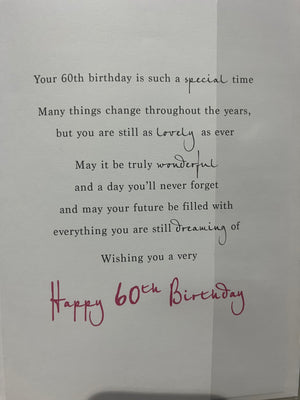 Your 60th birthday is such a special time
Many things change throughout the years,
but you are still as lovely as ever
May it be truly wonderful
and a day you'll never forget
and may your future be filled with
everything you are still dreaming of
Wishing you a very
Happy 60th Birthday